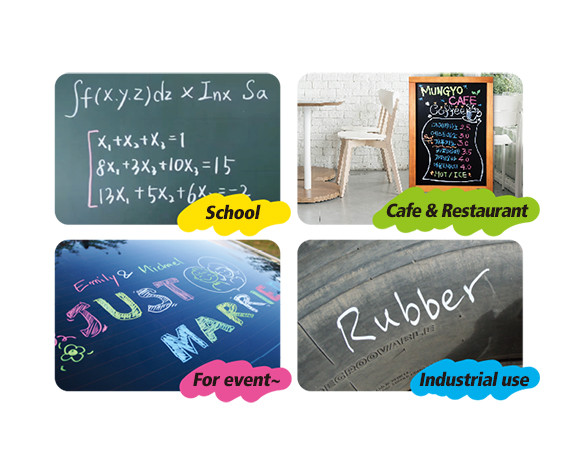 ∫f(x.y.z)dz × Inx Sa
x₁+x₂+x₃=1
8x₁+3x₂+10x₃=15
13x₁+5x₂+6x₃=-2
School
MUNGYO
CAFE
Coffee
2.5
3.0
3.0
3.5
4.0
4.0
HOT / ICE
Cafe & Restaurant
Emily & Michael
JUST
MARRIE
For event~
Rubber
Industrial use